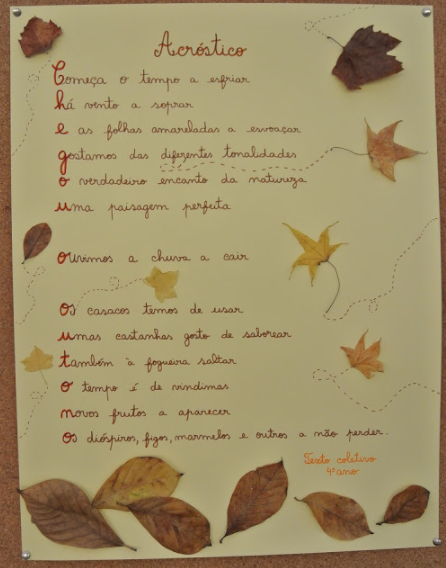 Acróstico
Começa o tempo a esfriar
há vento a soprar
e as folhas amareladas a esvoaçar
gostamos das diferentes tonalidades
o verdadeiro encanto da natureza
uma paisagem perfeita
ouvimos a chuva a cair
os casacos temos de usar
umas castanhas gosto de saborear
também à fogueira saltar
o tempo é de vindimas
novos frutos a aparecer
os dióspiros, figos, marmelos e outros a não perder.
Texto coletivo
4º ano